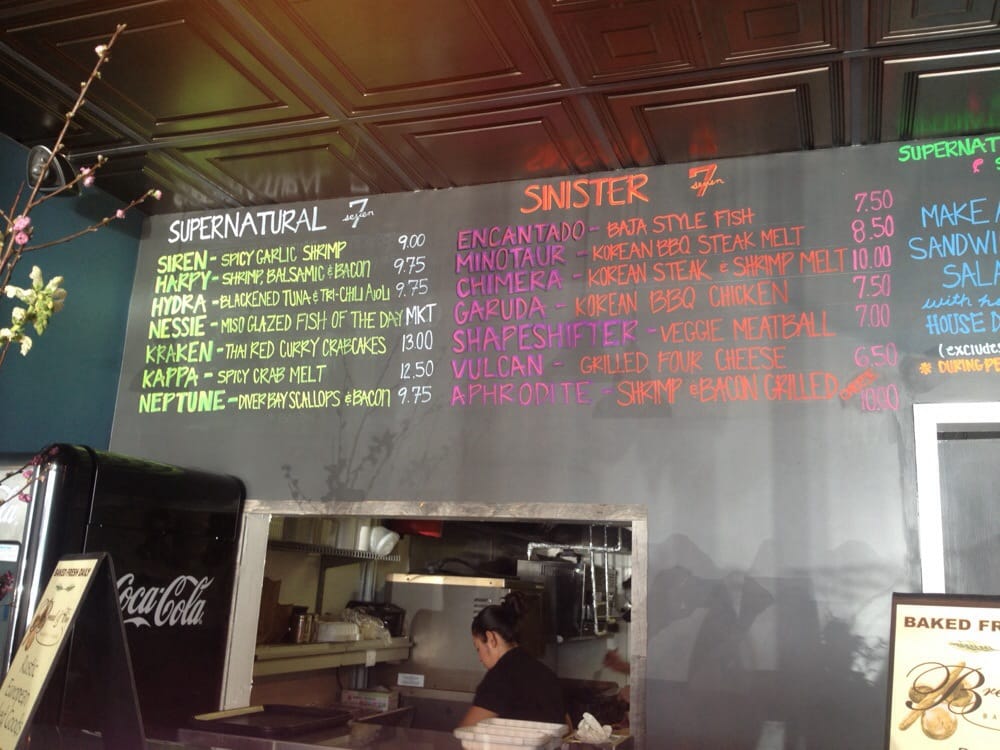 SUPERNATURAL 7
SIREN - SPICY GARLIC SHRIMP 9.00
HARPY - SHRIMP, BALSAMIC & BACON 9.75
HYDRA - BLACKENED TUNA & TRI-CHILI AIOLI 9.75
NESSIE - MISO GLAZED FISH OF THE DAY MKT
KRAKEN - THAI RED CURRY CRABCAKES 13.00
KAPPA - SPICY CRAB MELT 12.50
NEPTUNE - DIVER BAY SCALLOPS & BACON 9.75
SINISTER 7
ENCANTADO - BAJA STYLE FISH 7.50
MINOTAUR - KOREAN BBQ STEAK MELT 8.50
CHIMERA - KOREAN STEAK & SHRIMP MELT 10.00
GARUDA - KOREAN BBQ CHICKEN 7.50
SHAPESHIFTER - VEGGIE MEATBALL 7.00
VULCAN - GRILLED FOUR CHEESE 6.50
APHRODITE - SHRIMP & BACON GRILLED 10.00
SUPERNAT
MAKE A
SANDWI
SALA
with h
HOUSE D
(exclude
* DURING PE
Coca-Cola
BAKED FRESH DAILY
Rustic
European
BAKED FR
Bre
BA